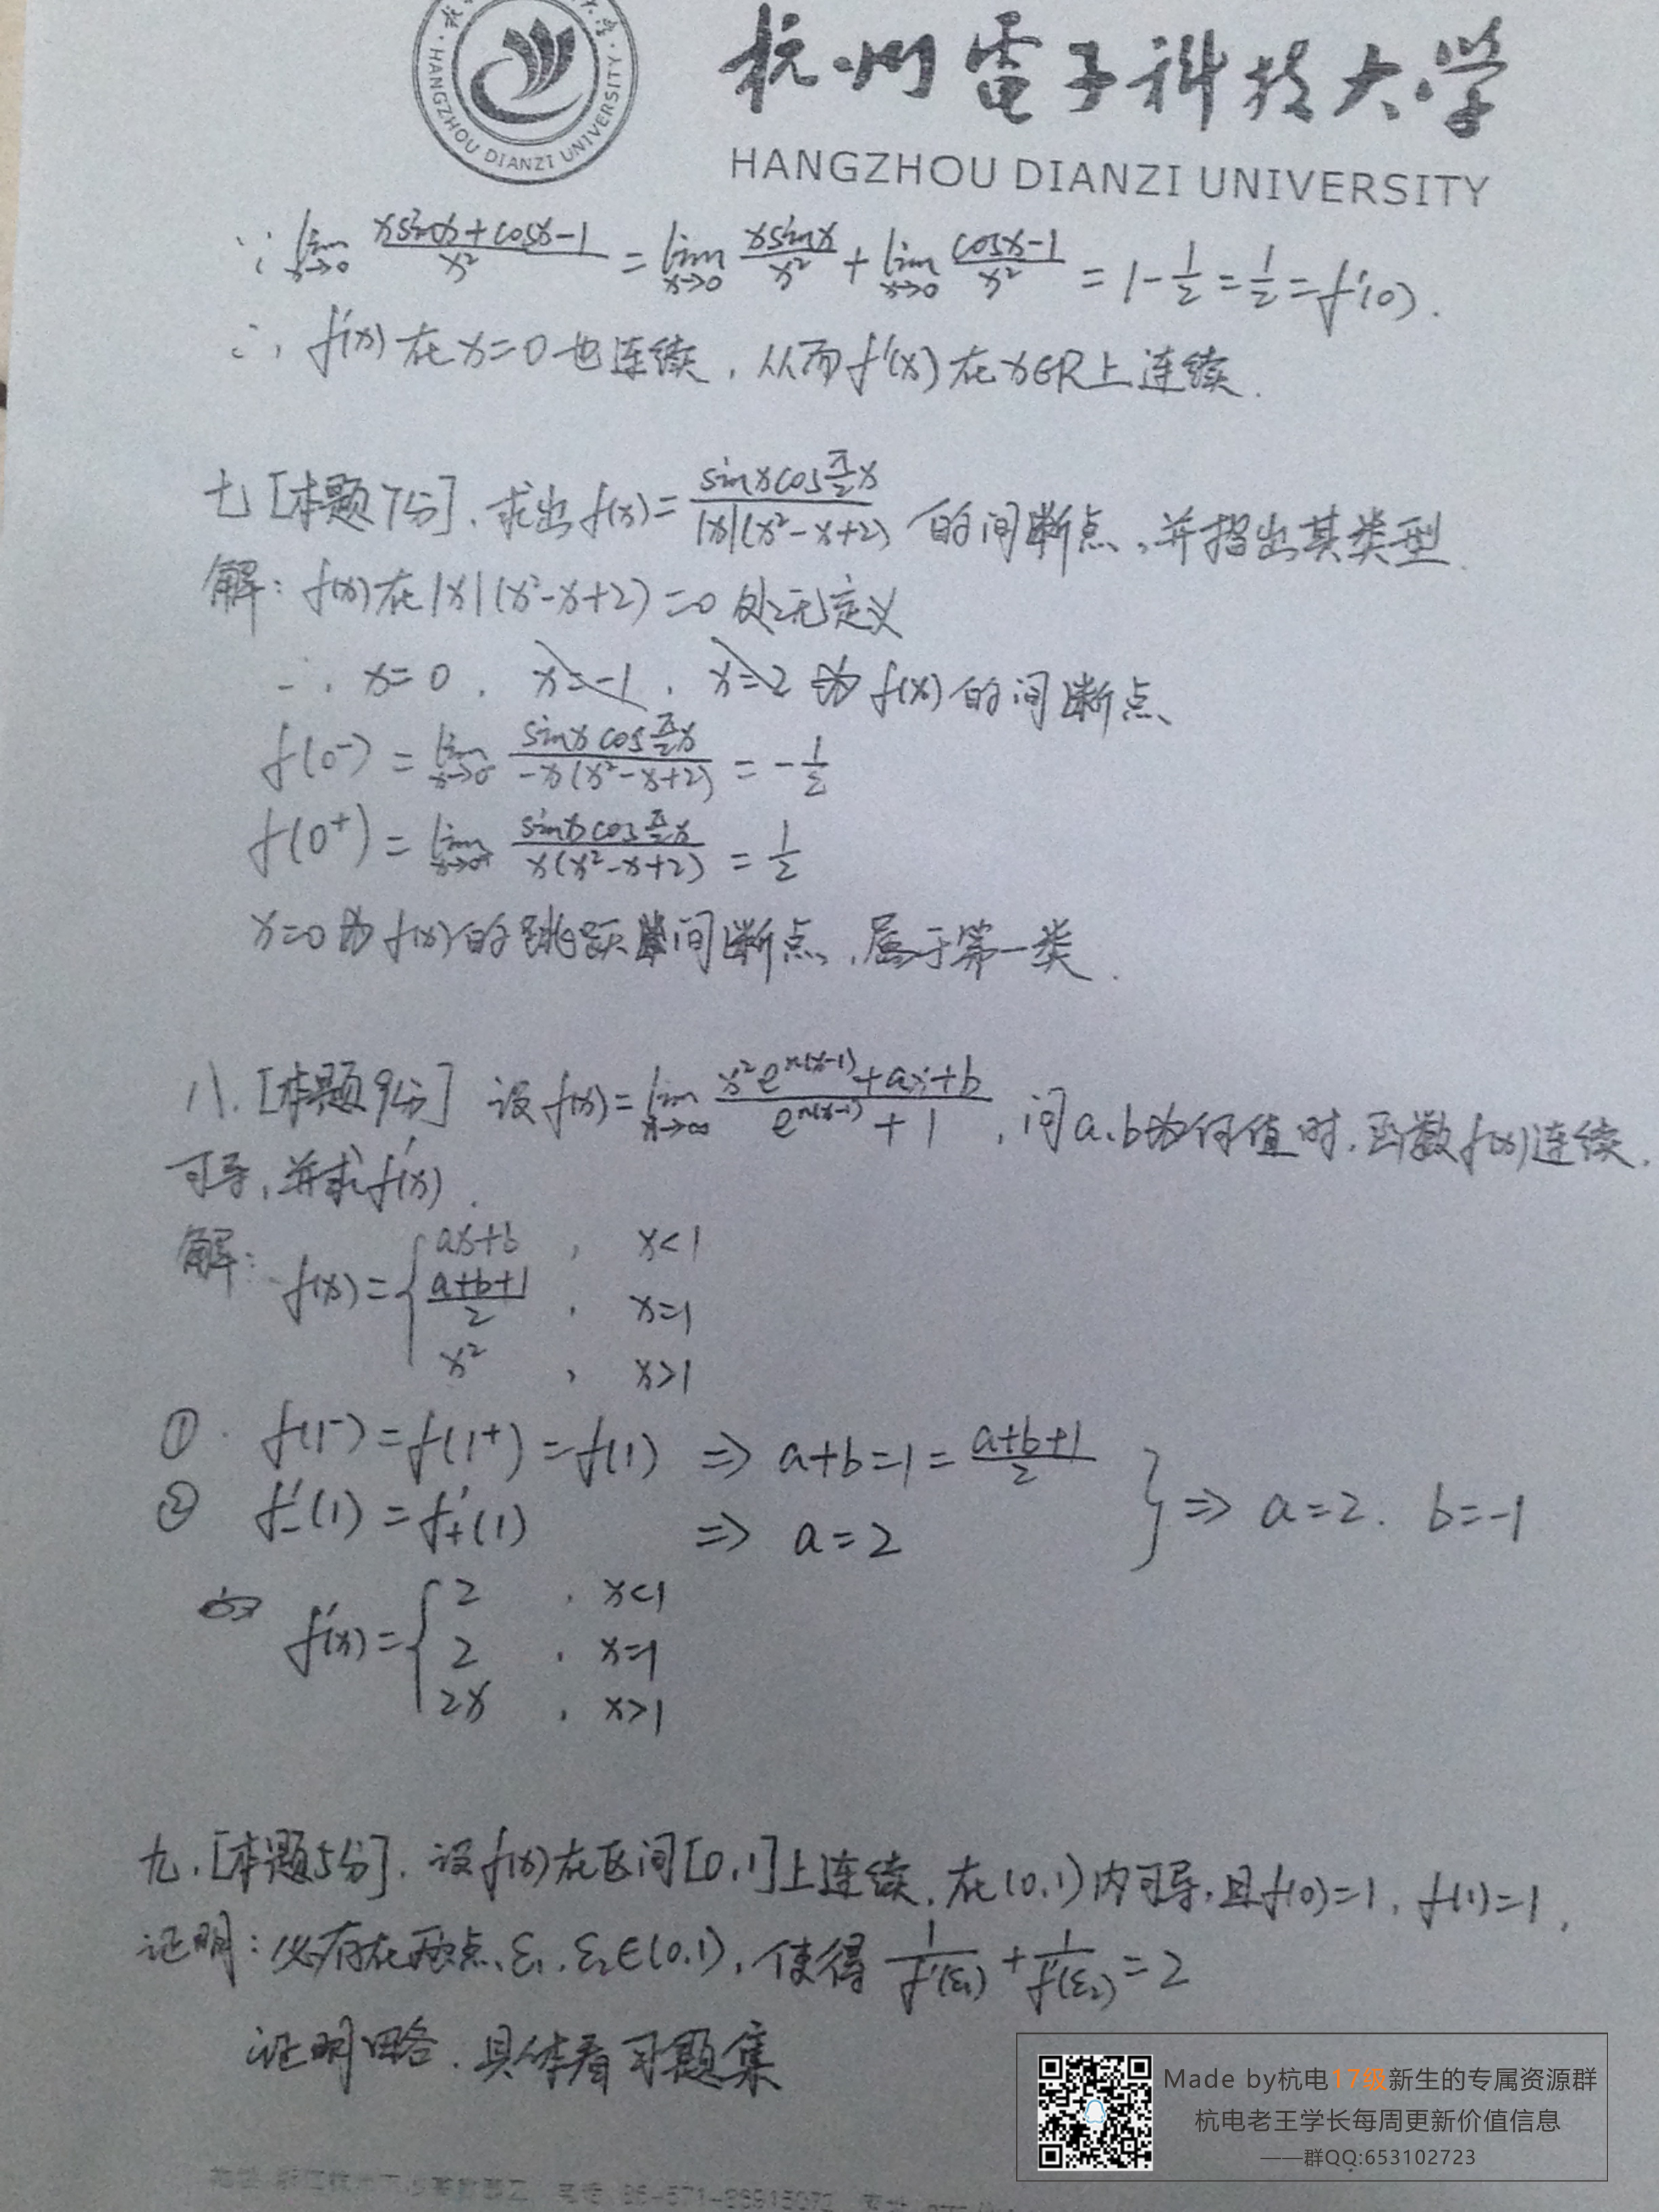 HANGZHOU DIANZI UNIVERSITY
杭州電子科技大学
HANGZHOU DIANZI UNIVERSITY
∵ lim x→0 (xsinx+cosx-1)/x² = lim x→0 xsinx/x² + lim x→0 (cosx-1)/x² = 1-1/2 = 1/2 = f'(0).
∴ f'(x)在x=0也连续,从而f'(x)在x∈R上连续.
七[本题7分].求出f(x)= sinxcos(π/2)x / |x|(x²-x+2) 的间断点,并指出其类型.
解: f(x)在|x|(x²-x+2)=0处无定义
∴ x=0, x=-1, x=2 为f(x)的间断点
f(0⁻) = lim x→0⁻ sinxcos(π/2)x / -x(x²-x+2) = -1/2
f(0⁺) = lim x→0⁺ sinxcos(π/2)x / x(x²-x+2) = 1/2
x=0为f(x)的跳跃间断点,属于第一类.
八.[本题9分] 设f(x)= lim n→∞ (x²e^{n(x-1)}+ax+b) / (e^{n(x-1)}+1),问a、b为何值时,函数f(x)连续.
可导,并求f'(x).
解: f(x)= { ax+b , x<1
(a+b+1)/2 , x=1
x² , x>1
① f(1⁻)=f(1⁺)=f(1) ⇒ a+b=1=(a+b+1)/2
② f'₋(1)=f'₊(1) ⇒ a=2 } ⇒ a=2. b=-1
f'(x)= { 2 , x<1
2 , x=1
2x , x>1
九.[本题5分].设f(x)在区间[0,1]上连续,在(0,1)内可导,且f(0)=1, f(1)=1,
证明:必存在两点ξ₁,ξ₂∈(0,1),使得 1/f'(ξ₁) + 1/f'(ξ₂) = 2
证明略.具体看习题集
Made by杭电17级新生的专属资源群
杭电老王学长每周更新价值信息
——群QQ:653102723